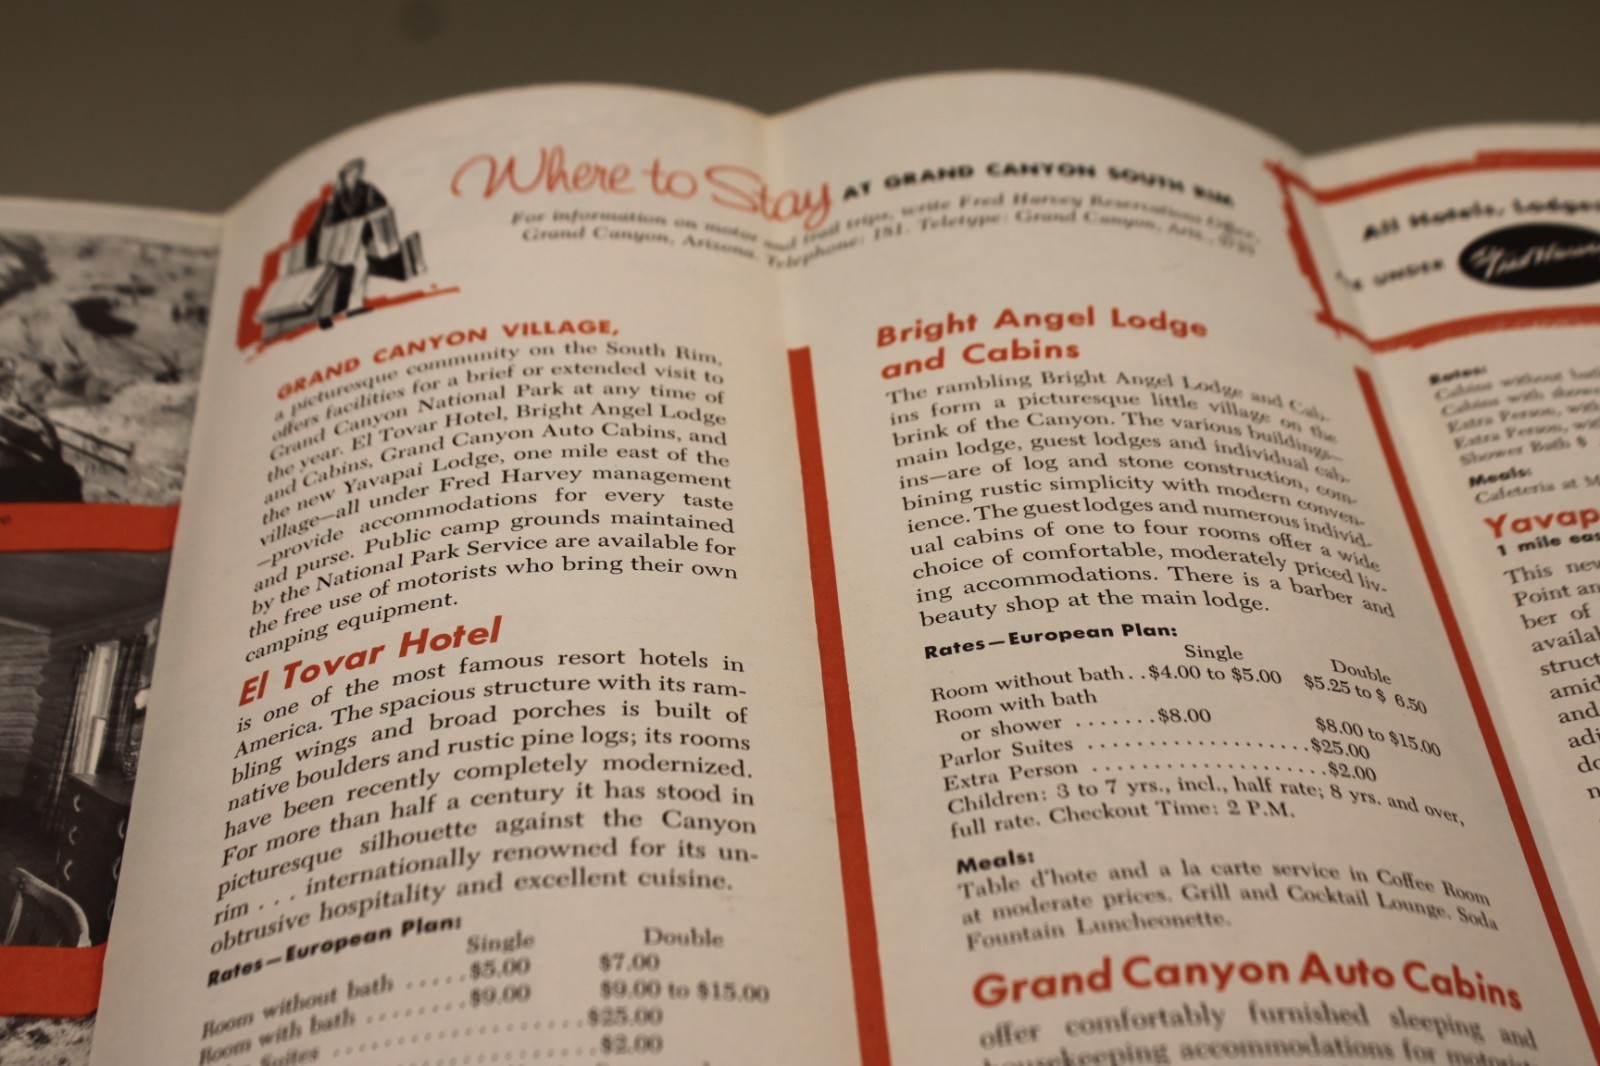 Where to Stay AT GRAND CANYON SOUTH RIM
For information on motor and trail trips, write Fred Harvey Reservations Office,
Grand Canyon, Arizona. Telephone: 181. Teletype: Grand Canyon, Ariz.,
GRAND CANYON VILLAGE,
a picturesque community on the South Rim,
offers facilities for a brief or extended visit to
Grand Canyon National Park at any time of
the year. El Tovar Hotel, Bright Angel Lodge
and Cabins, Grand Canyon Auto Cabins, and
the new Yavapai Lodge, one mile east of the
village—all under Fred Harvey management
—provide accommodations for every taste
and purse. Public camp grounds maintained
by the National Park Service are available for
the free use of motorists who bring their own
camping equipment.
El Tovar Hotel
is one of the most famous resort hotels in
America. The spacious structure with its ram-
bling wings and broad porches is built of
native boulders and rustic pine logs; its rooms
have been recently completely modernized.
For more than half a century it has stood in
picturesque silhouette against the Canyon
rim . . . internationally renowned for its un-
obtrusive hospitality and excellent cuisine.
Rates—European Plan:
Single Double
Room without bath ..... $5.00 $7.00
Room with bath ........ $9.00 $9.00 to $15.00
Suites .................... $25.00
$2.00
Bright Angel Lodge
and Cabins
The rambling Bright Angel Lodge and Cab-
ins form a picturesque little village on the
brink of the Canyon. The various buildings—
main lodge, guest lodges and individual cab-
ins—are of log and stone construction, com-
bining rustic simplicity with modern conven-
ience. The guest lodges and numerous individ-
ual cabins of one to four rooms offer a wide
choice of comfortable, moderately priced liv-
ing accommodations. There is a barber and
beauty shop at the main lodge.
Rates—European Plan:
Single Double
Room without bath..$4.00 to $5.00 $5.25 to $ 6.50
Room with bath
or shower .......$8.00 $8.00 to $15.00
Parlor Suites ...................$25.00
Extra Person ....................$2.00
Children: 3 to 7 yrs., incl., half rate; 8 yrs. and over,
full rate. Checkout Time: 2 P.M.
Meals:
Table d'hote and a la carte service in Coffee Room
at moderate prices. Grill and Cocktail Lounge. Soda
Fountain Luncheonette.
Grand Canyon Auto Cabins
offer comfortably furnished sleeping and
housekeeping accommodations for
All Hotels, Lodges
UNDER Fred Harvey
Rates:
Cabins without
Cabins with
Extra Person,
Extra Person,
Shower Bath $
Meals:
Cafeteria at
Yavap
1 mile eas
This new
Point an
ber of
availal
struct
amid
and
adj
do